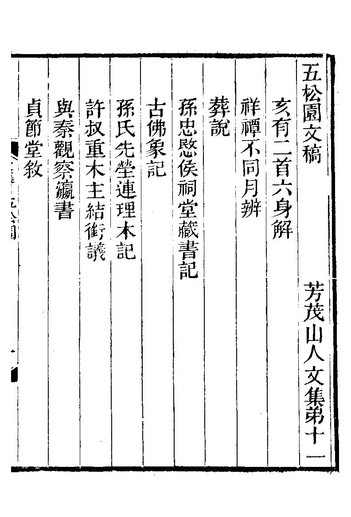 五松園文稿 芳茂山人文集弟十一
亥有二首六身解
祥禫不同月辨
葬說
孫忠愍侯祠堂藏書記
古佛象記
孫氏先塋連理木記
許叔重木主結銜議
與秦觀察瀛書
貞節堂敘